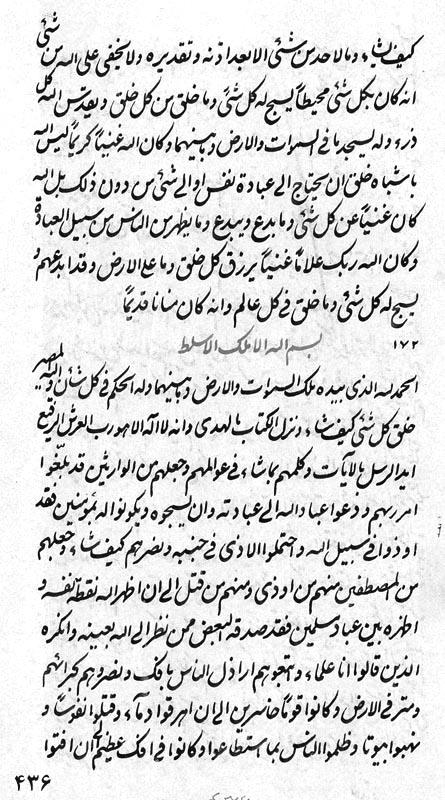 شئی
كیف یشاء و ما لاحد من شئی الا بعد اذنه و تقدیره و لا یخفی علی الله من
انه كان بكل شئی محیطا یسبح له كل شئی و ما خلق من كل خلق و یقدس الله كل
ذرء و له یسجد ما فی السموات و الارض و ما بینهما و كان الله غنیا كریما لیس الله
باشباه خلق ان یحتاج الی عبادة نفس او الی شئی من دون ذلك بل الله
كان غنیا عن كل شئی و ما بدع و یبدع و ما یظهر من الناس من سبیل العبادة
و كان الله ربك علاما غنیا یرزق كل خلق و ما علی الارض و قد ابدعهم و
یسبح له كل شئی و ما خلق فی كل عالم و انه كان منانا قدیما
١٧٢ بسم الله الاملك الاسلط
الحمد لله الذی بیده ملك السموات و الارض و ما بینهما و له الحكم فی كل شأن و الیه المصیر
خلق كل شئی كیف شاء و نزل الكتاب بالهدی و انه لا اله الا هو رب العرش الرفیع
اید الرسل بالآیات و كلمهم بما شاء فی عوالمهم و جعلهم من الوارثین قد بلغوا
امر ربهم و دعوا عباد الله الی عبادته و ان یسبحوه و یكونوا له لمؤمنین فقد
اوذوا فی سبیل الله و احتملوا الاذی فی جنبه و نصرهم كیف شاء و جعلهم
من المصطفین منهم من اوذی و منهم من قتل الی ان اظهر الله نقطة نفسه و
اظهره بین عباد مسلمین فقد صدقه البعض ممن نظر الی الله بعینه و انكره
الذین قالوا انا علماء و اتبعوهم اراذل الناس بافك و نصروهم كبرائهم
و متر فی الارض و كانوا قوما خاسرین الی ان اهرقوا دماء و قتلوا نفوسا و
نهبوا بیوتا و ظلموا الناس بما استطاعوا و كانوا فی افك عظیم الی ان افتوا
۴۳۶